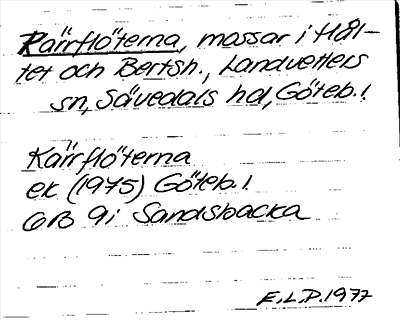 Kärrflöterna, mossar i Hål-
tet och Bertsh., Landvetters
sn, Sävedals hd, Göteb.l.
Kärrflöterna
ek (1975) Göteb.l
6B 9i Sandsbacka
E.L.P.1977